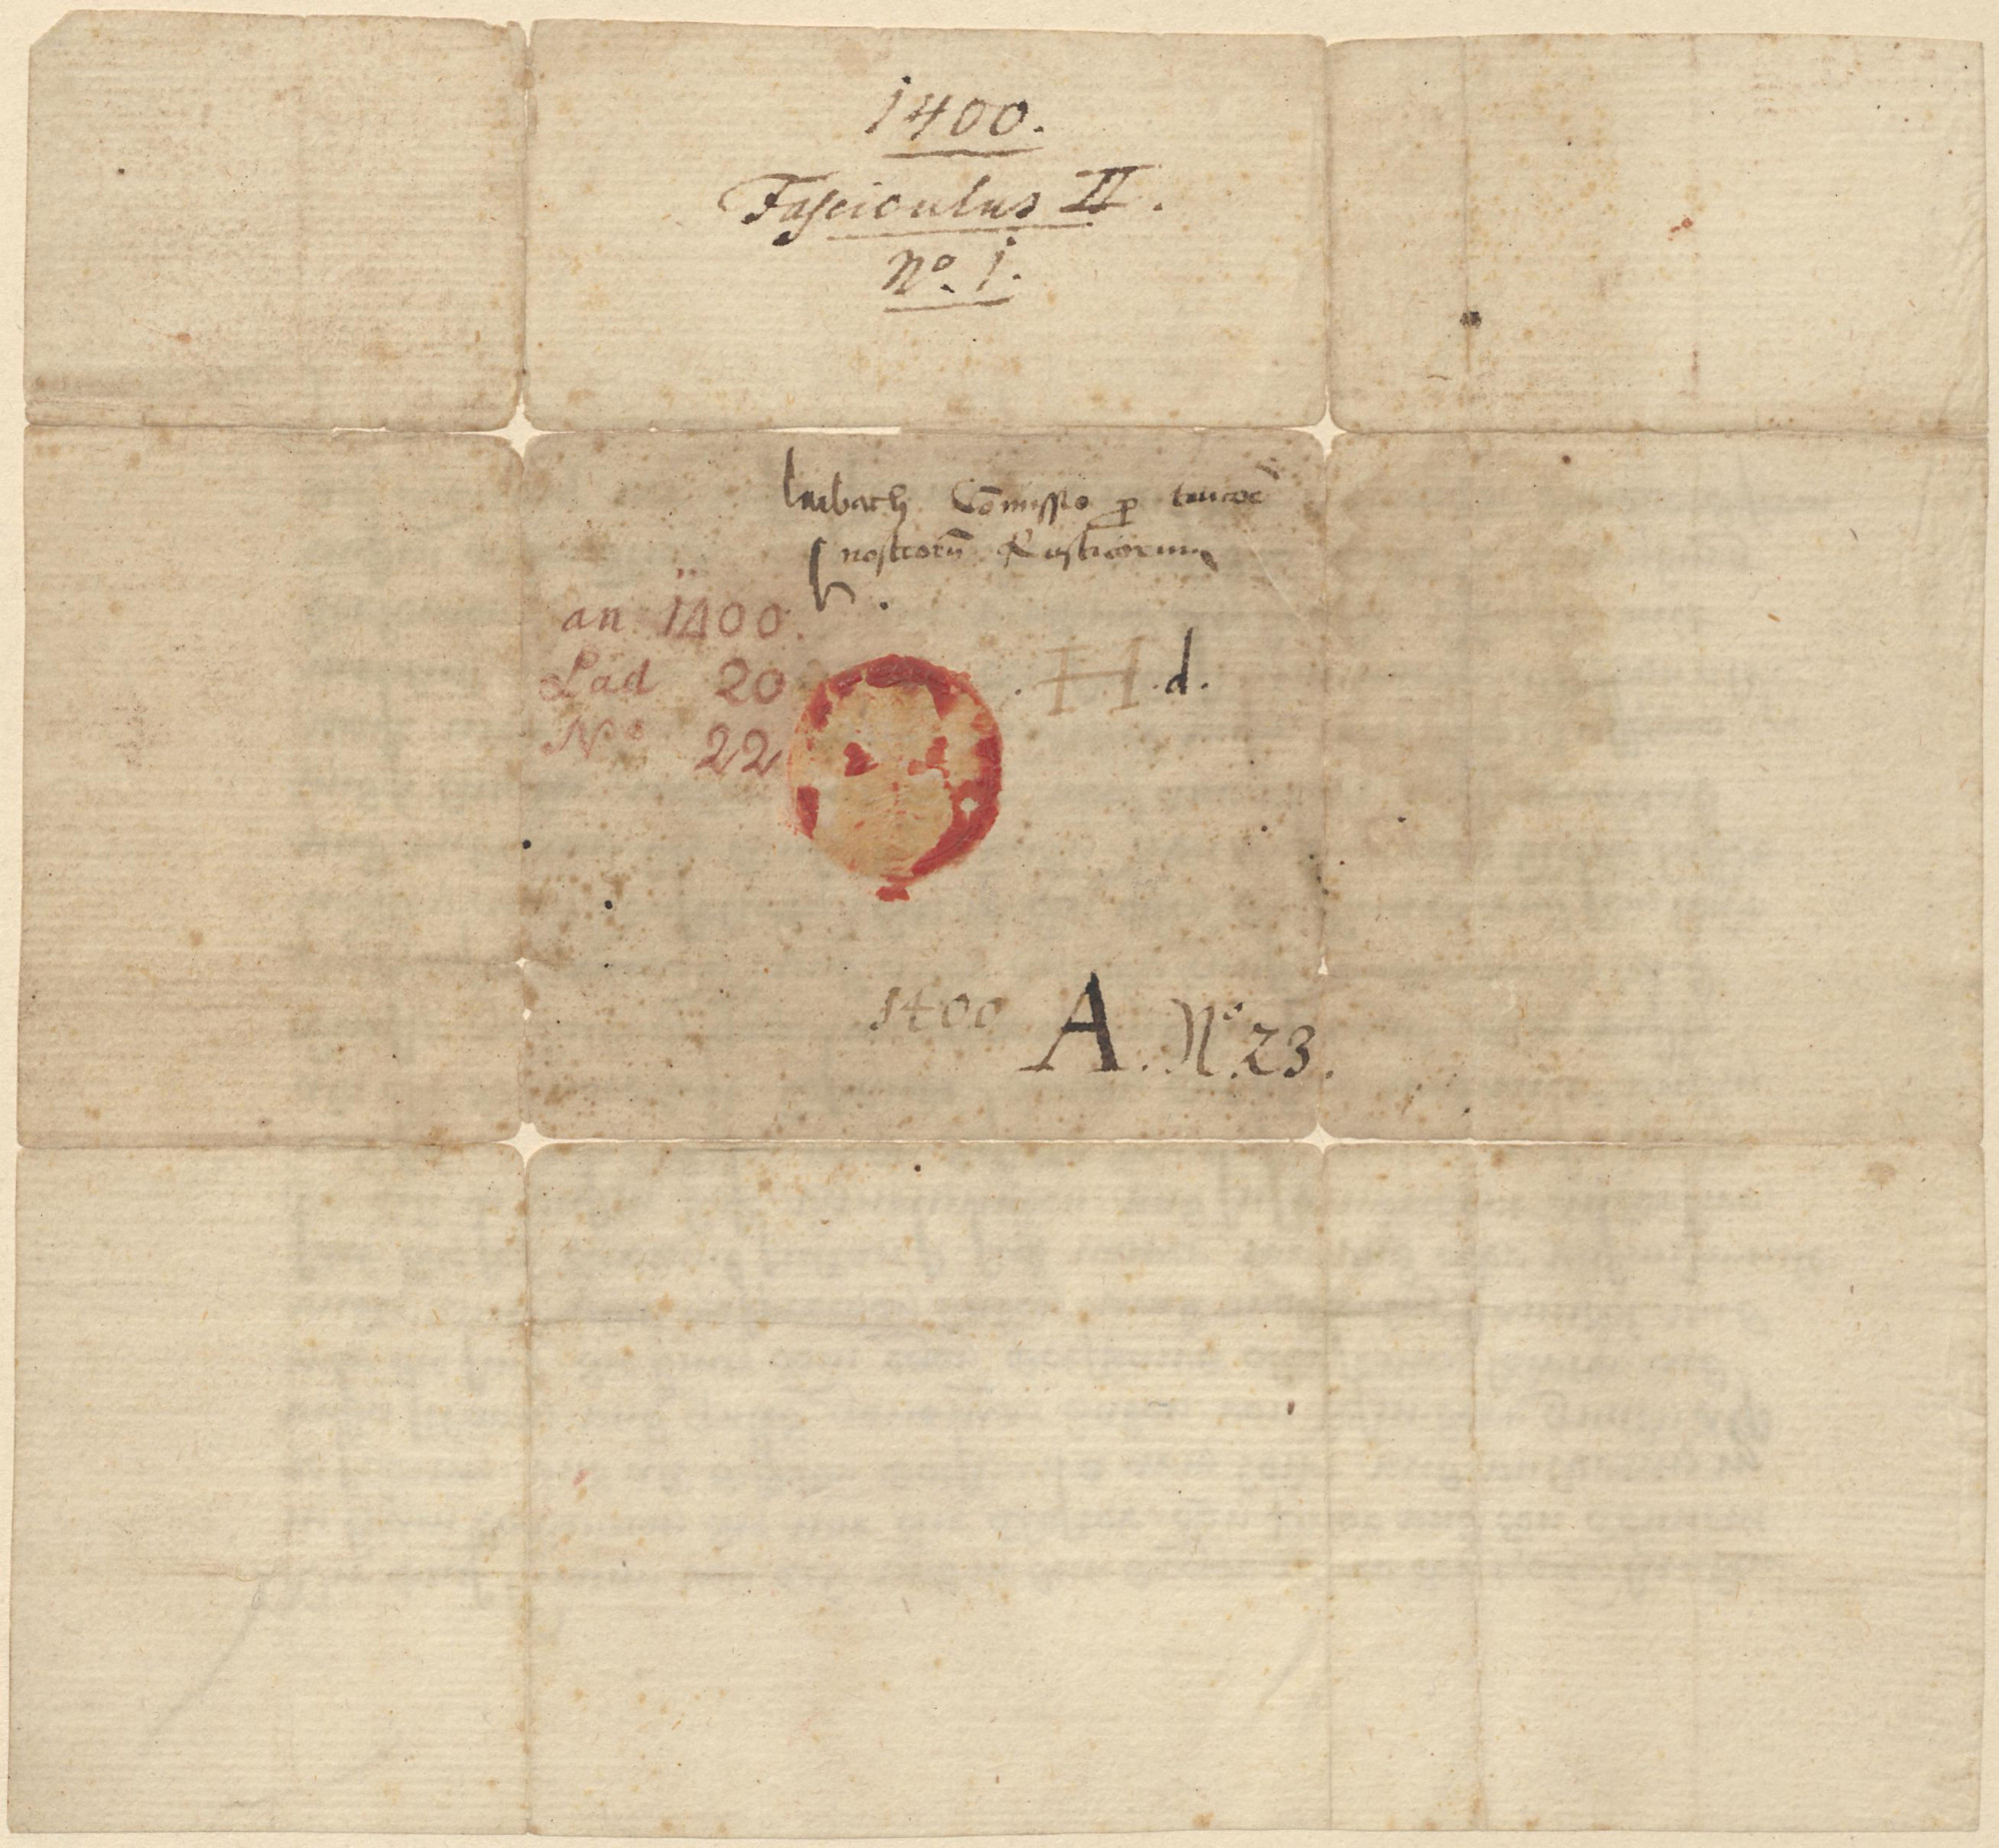 1400.
Fasciculus II.
No. 1.
laibach Com̄issio ꝑ
nostrorū Rusticorum
an 1400.
Lad 20
No 22
H.d.
1400 A. No. 23.